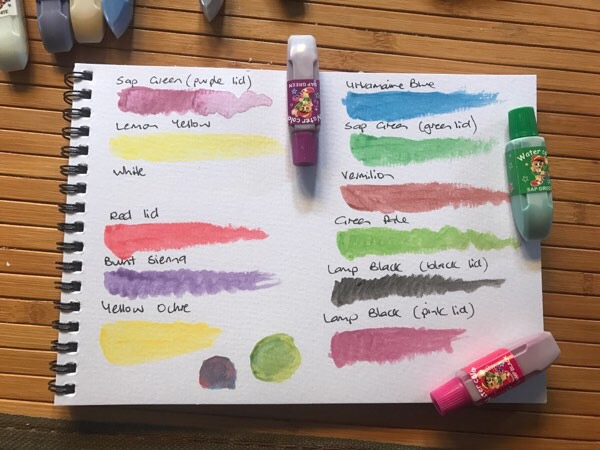 Sap Green (purple lid)
Lemon Yellow
White
Red lid
Burnt Sienna
Yellow Ochre
Ultramarine Blue
Sap Green (green lid)
Vermilion
Green Pale
Lamp Black (black lid)
Lamp Black (pink lid)
SAP GREEN
Water color
Water co
SAP GREE